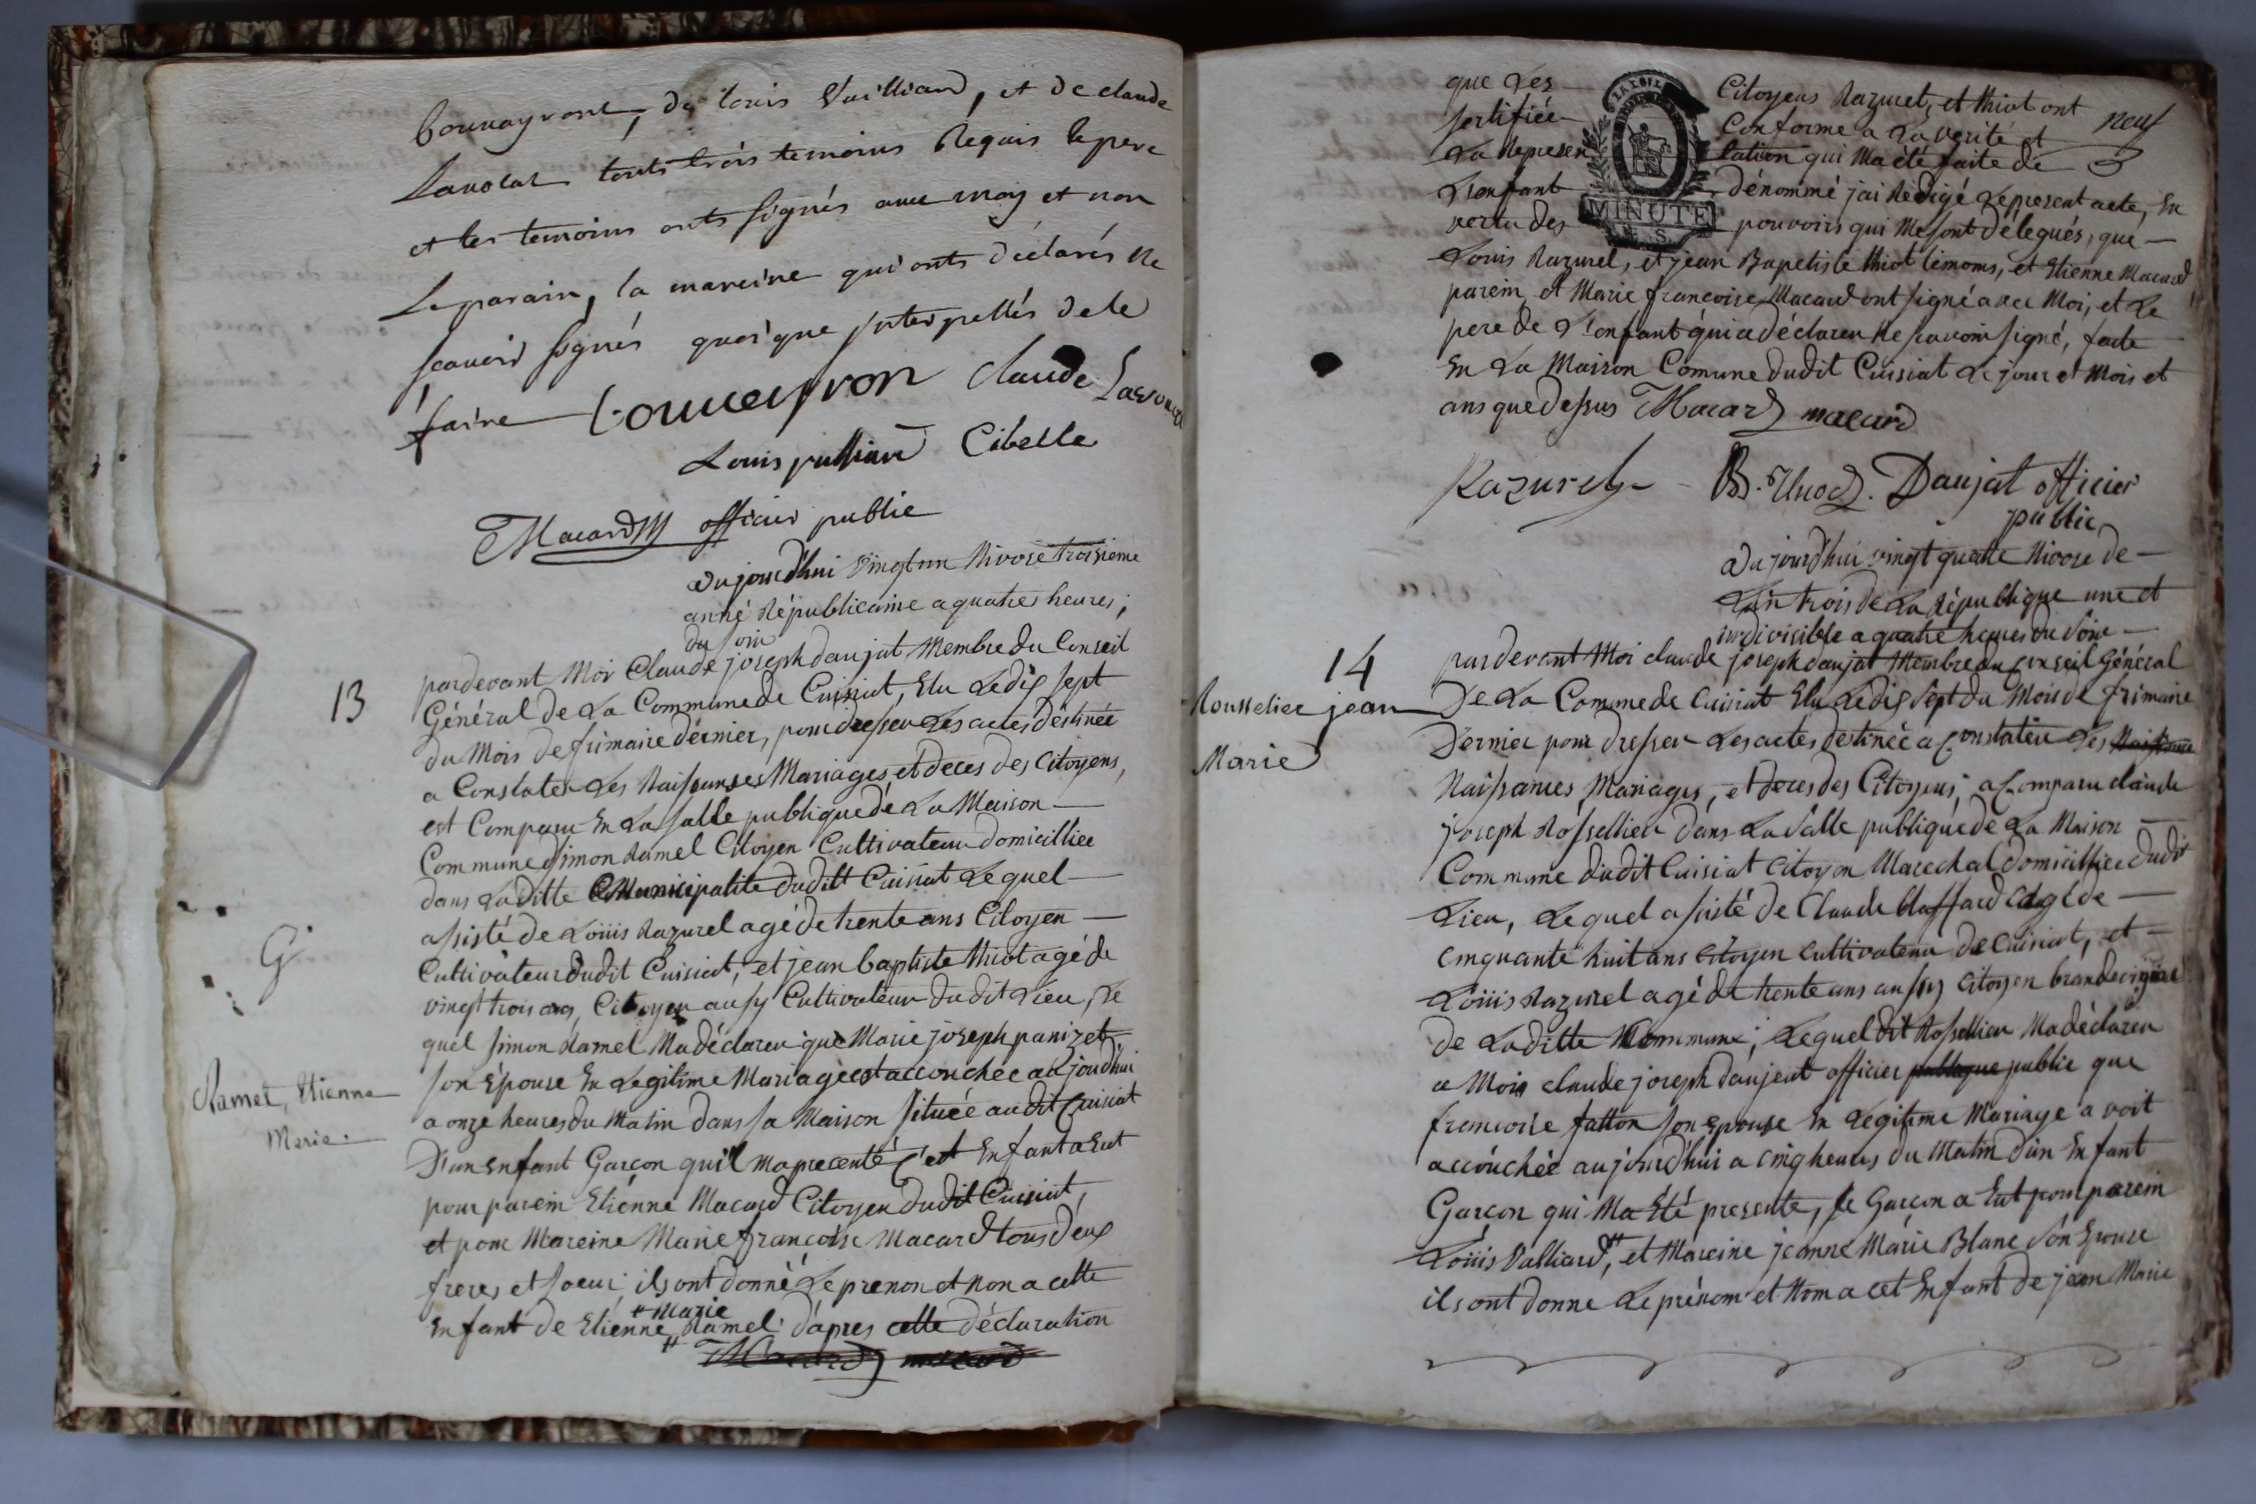 et de claude
Lavocat touts trois temoins Requis le pere
et les temoins onts signés avec moy et non
Le parain, la mareine qui onts déclarés ne
scavoir signés quoique interpellés de le
faire
claude Lavocat
Louis Cibelle
Macard officier public
13
aujourd'hui vingt un Nivose troisieme
anné Républicaine a quatres heures;
du soir
pardevant Moi Claude joseph daujat Membre du Conseil
Général de La Commune de Cuisiat, Elu Le dix sept
du Mois de frimaire dérnier, pour dresser Les actes déstinée
a Constater Les Naissances Mariages et deces des Citoyens,
est Comparu En La salle publique dé La Maison
Commune Simon Ramel Citoyen Cultivateur domicilliee
dans La ditte Municipalite dudit Cuisiat Le quel
assisté de Loüis Razurel agé de trente ans Citoyen
Cultivateur dudit Cuisiat, et jean baptiste thiot agé de
vingt trois ans, Citoyen aussy Cultivateur dudit Lieu, Le
quel simon Ramel Ma déclarer que Marie joseph panizet
son Épouse En Legitime Mariage est accouchée aujoud'hui
a onze heures du Matin dans sa Maison située audit Cuisiat
D'un enfant Garçon quil ma precenté c'est Enfant a Eut
pour parein Etiénne Macard Citoyen dudit Cuisiat,
et pour Mareine Marie francoise Macard tous deux
freres et soeur; ils ont donné Le prenon et Non a cette
+ marie
Enfant de Etiénne Ramel d'apres cette déclaration
Macard macard
Ramel, Etienne
Marie.
G
que Les Citoyens Razurel, et thiot ont
neuf
sertifiée Conforme a La verité et
La Represen tation qui Ma été faite de
L'enfant dénommé j'ai Redigé Le present acte, En
vertu des pouvoirs qui Me sont délegués, que
LA LOI
MINUTE
Louis Razurel, et jean Bapetiste thiot témoins, et Etienne Macard
parein et Marie francoise Macard ont signé avec Moi, et Le
pere de L'enfant qui a déclarer ne scavoir signé, faite
En La Maison Comune dudit Cuisiat Le jour et Mois et
ans que dessus Macard macard
Razurel B. thiod. Daujat officier
public
14
Rousselier jean
Marie
aujourd'hui vingt quatre Nivose de
L'an trois de La République une et
indivisible a quatre heures du soire
pardevant Moi claude joseph daujat Membre du Conseil Général
De La Commune de Cuisiat Elu Le dix sept du Mois de frimaire
Dernier pour dresser Les actes destinée a Constater Les Naissance
Naissances, Mariages, et deces des Citoyens, a Comparu claude
joseph Rossellier dans La salle publique de La Maison
Commune dudit Cuisiat citoyen Marechal domicilliee dudit
Lieu, Le quel assisté de Claude blaffard agé de
cinquante huit ans citoyen cultivateur de Cuisiat, et
Loüis Razurel agé de trente ans aussy citoyen
de Laditte Commune; Lequel dit Rossellier Ma déclarer
a Moi claude joseph daujeat officier publique public que
francoise fatton son epouse En Legitime Mariage a voit
accouchée aujourd'hui a cinq heures du Matin d'un Enfant
Garcon qui Ma Eté presente, le Garcon a Eut pour parein
Loüis et Mareine jeanne Marie Blanc son Epouse
ils ont donne Le prénom et Nom a cet Enfant de jean Marie